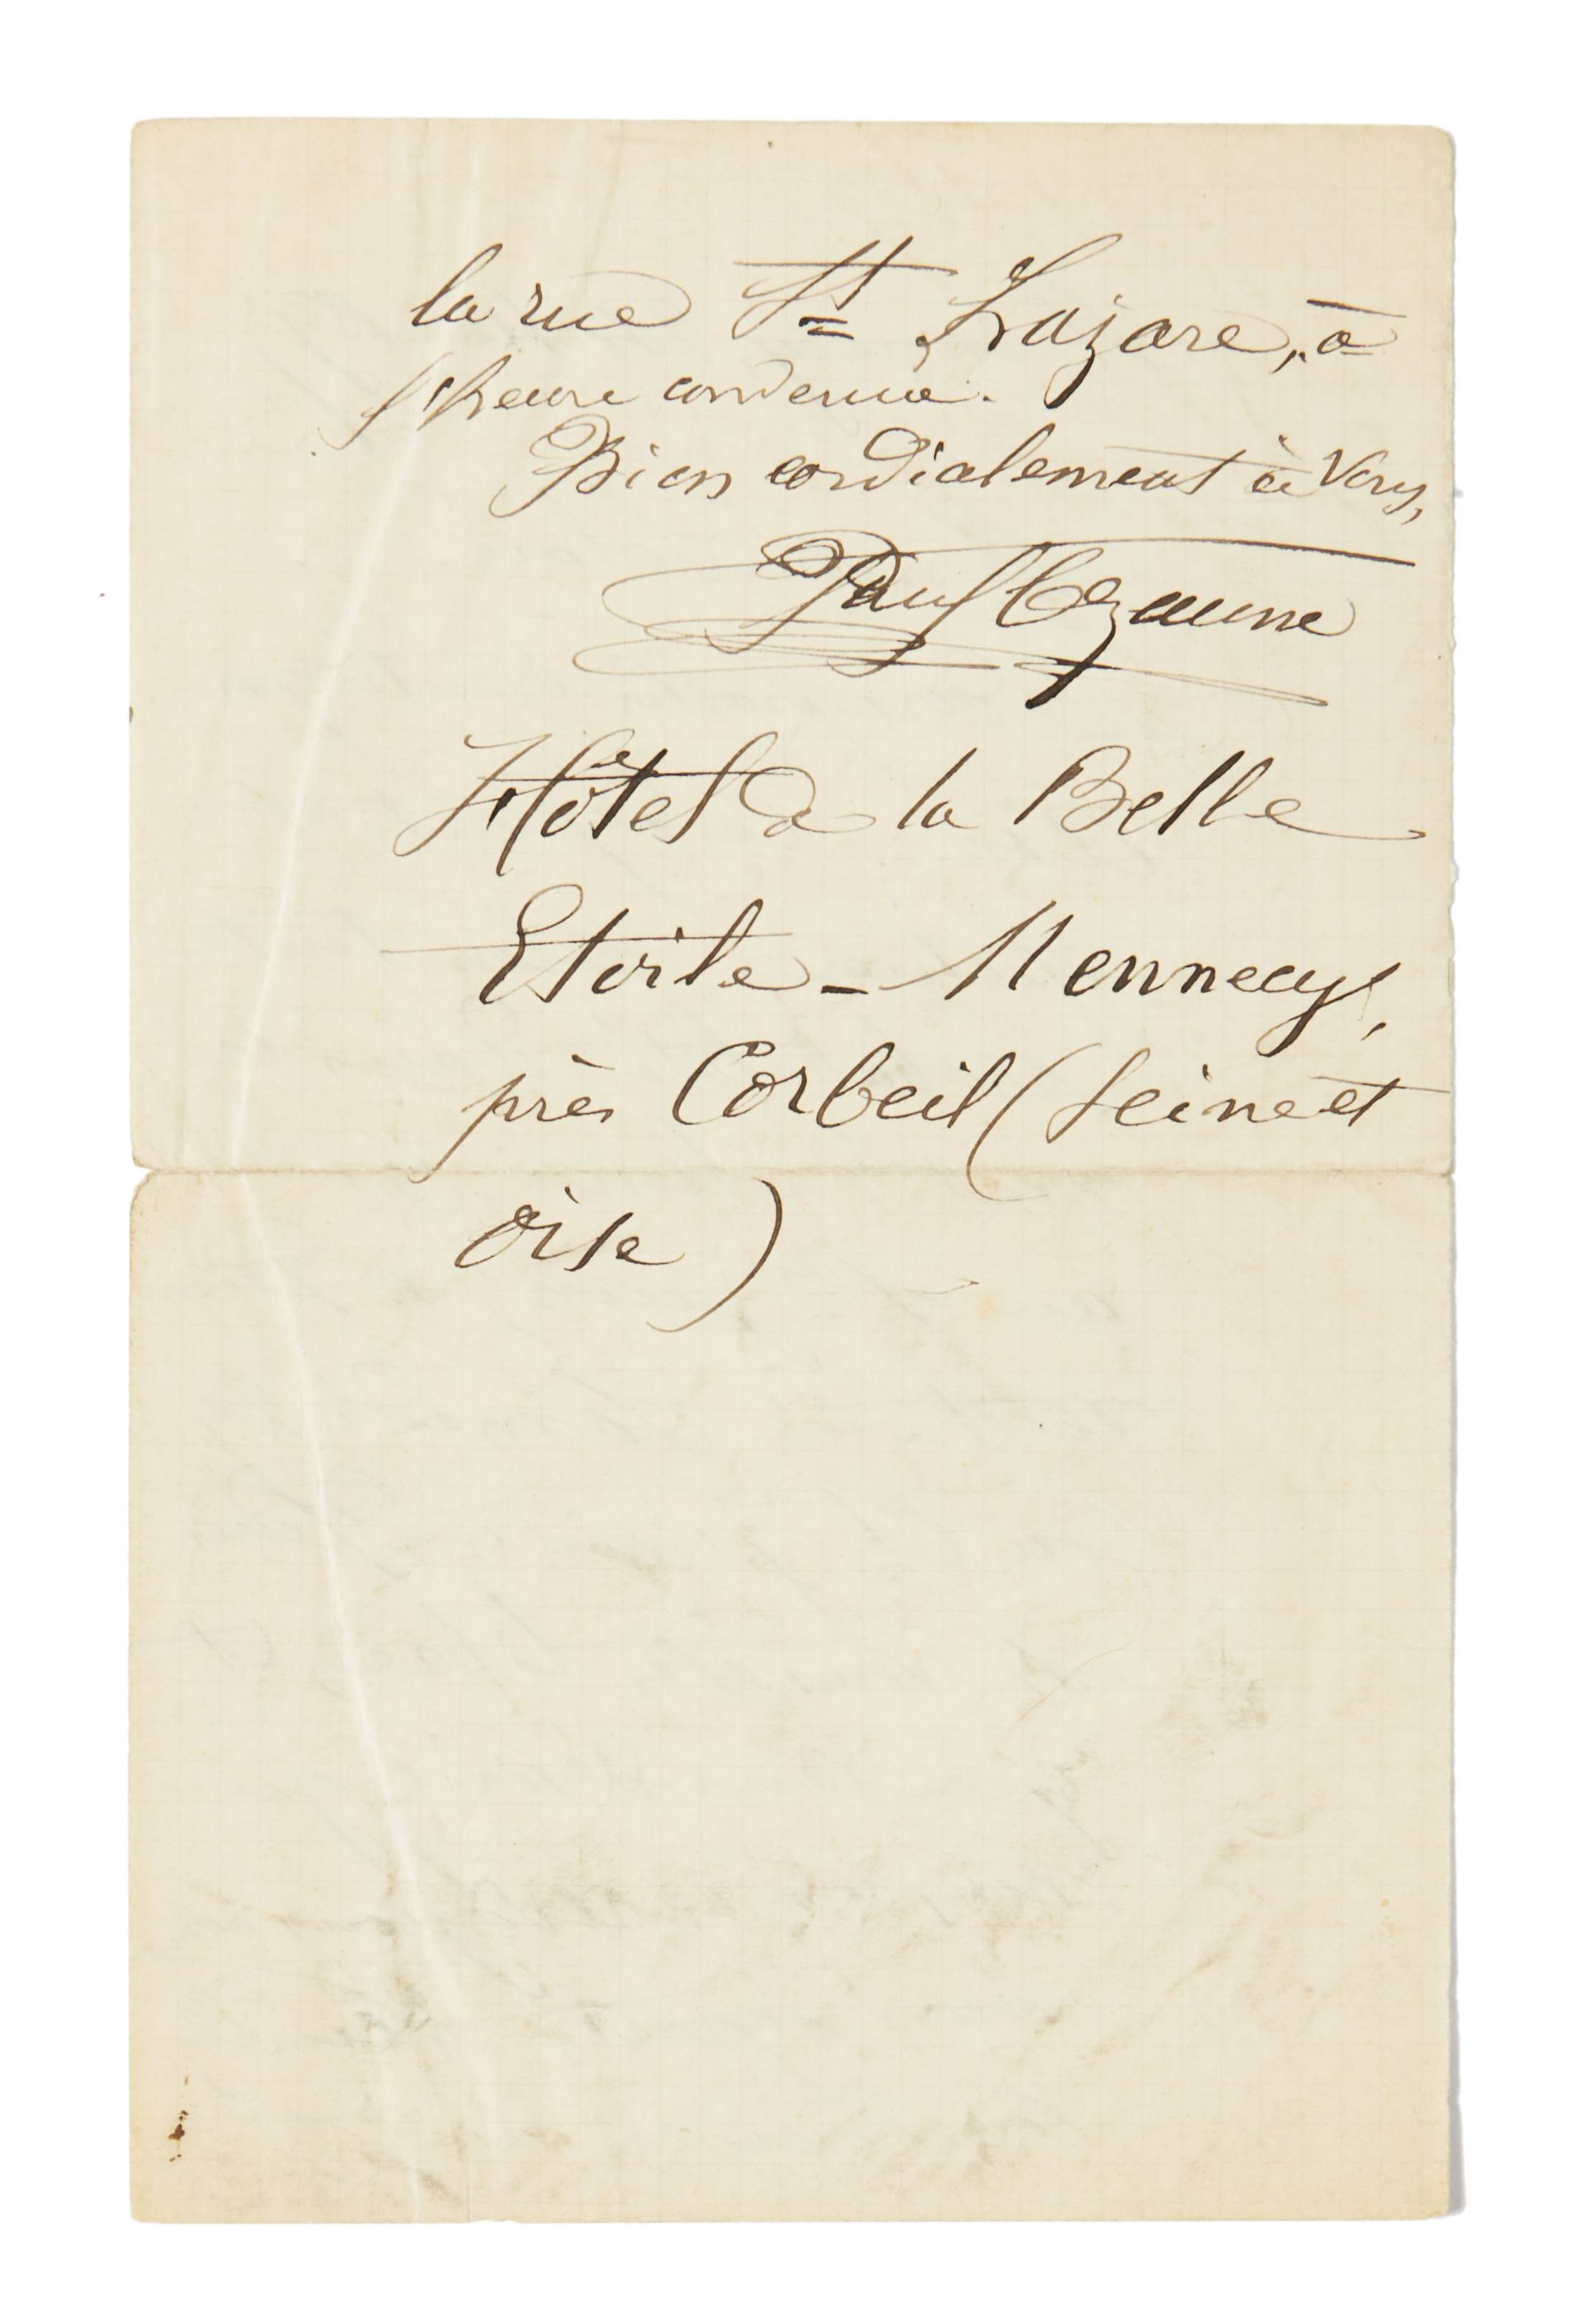 la rue St Lazare, à
l'heure convenue.
Bien cordialement à vous,
Paul Cezanne
Hôtel de la Belle
Etoile - Mennecy,
près Corbeil (Seine et
Oise)